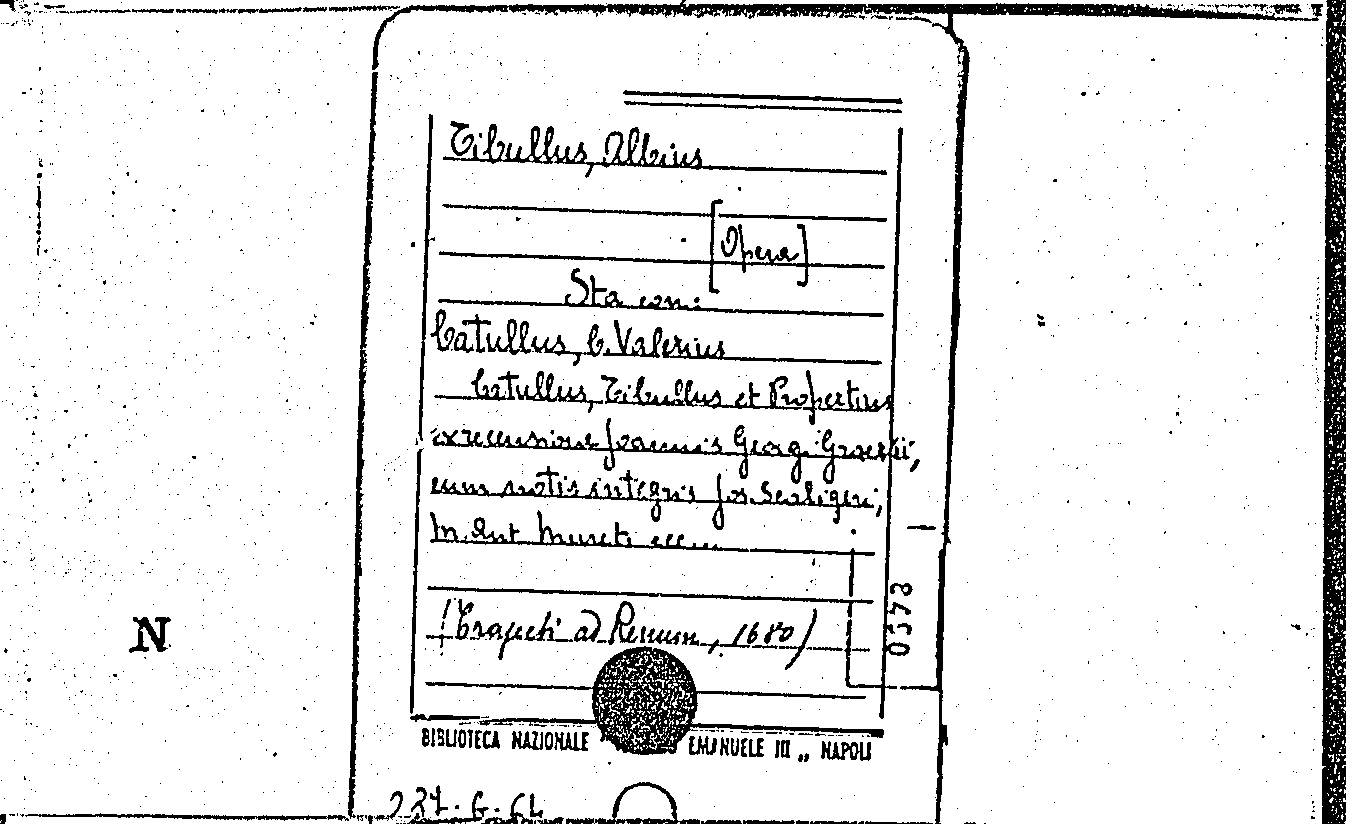 Tibullus, Albius
[Opera]
Sta con:
Catullus, C. Valerius
Catullus, Tibullus et Propertius
ex recensione Joannis Georg. Graevii,
cum notis integris Jos. Scaligeri,
M. Ant. Mureti ecc...
(Trajecti ad Renum, 1680)
0378
N
BIBLIOTECA NAZIONALE " EMANUELE III „ NAPOLI